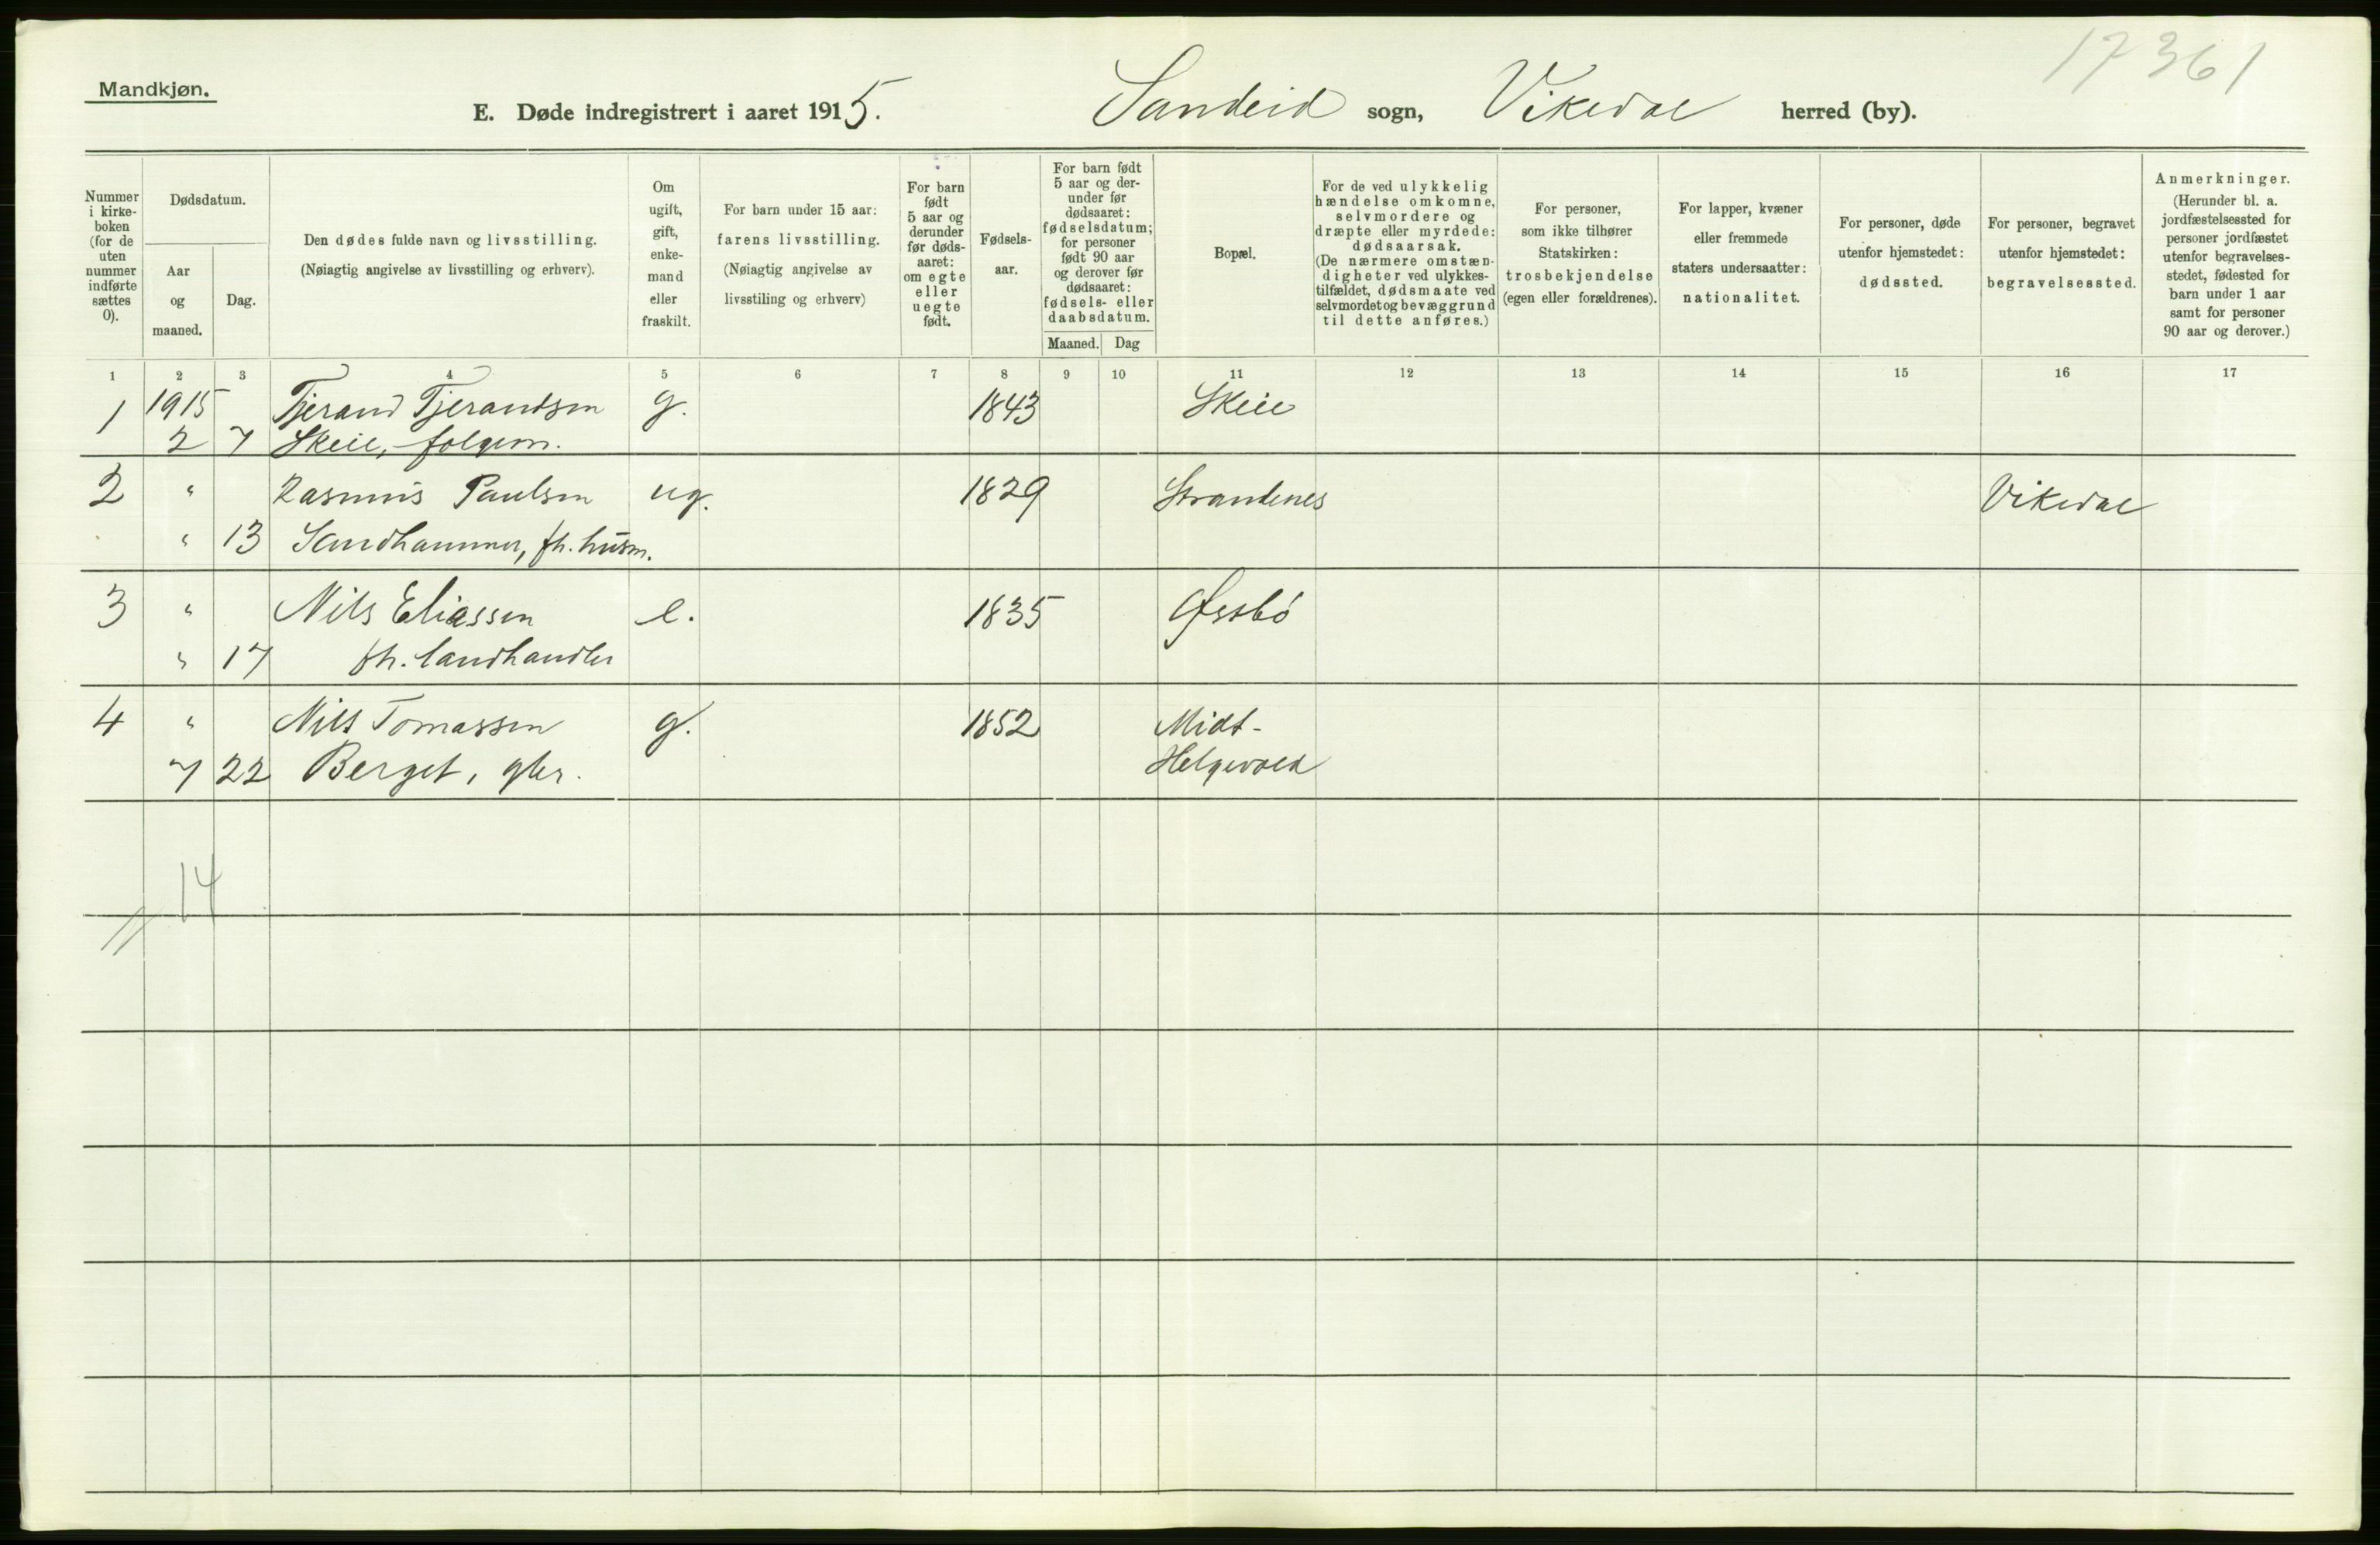 17361
Mandkjøn.
E. Døde indregistrert i aaret 1915. Sandeid sogn, Vikedal herred (by).
Nummer i kirkeboken (for de uten nummer indførte sættes 0).
Dødsdatum.
Aar og maaned.
Dag.
Den dødes fulde navn og livsstilling.
(Nøiagtig angivelse av livsstilling og erhverv).
Om ugift, gift, enkemand eller fraskilt.
For barn under 15 aar:
farens livsstilling.
(Nøiagtig angivelse av
livsstiling og erhverv)
For barn født 5 aar og derunder før dødsaaret: om egte eller uegte født.
Fødselsaar.
For barn født 5 aar og derunder før dødsaaret: fødselsdatum; for personer født 90 aar og derover før dødsaaret: fødsels- eller daabsdatum.
Maaned. Dag
Bopæl.
For de ved ulykkelig hændelse omkomne, selvmordere og dræpte eller myrdede: dødsaarsak. (De nærmere omstændigheter ved ulykkestilfældet, dødsmaate ved selvmordet og bevæggrund til dette anføres.)
For personer, som ikke tilhører Statskirken: trosbekjendelse (egen eller forældrenes).
For lapper, kvæner eller fremmede staters undersaatter: nationalitet.
For personer, døde utenfor hjemstedet: dødssted.
For personer, begravet utenfor hjemstedet: begravelsessted.
Anmerkninger.
(Herunder bl. a. jordfæstelsessted for personer jordfæstet utenfor begravelsesstedet, fødested for barn under 1 aar samt for personer 90 aar og derover.)
1 2 3 4 5 6 7 8 9 10 11 12 13 14 15 16 17
1 1915 Tjerand Tjerandsen g. 1843 Skeie
2 7 Skeie, folgem.
2 " Rasmus Paulsen ug. 1829 Strandenes Vikedal
" 13 Sandhammer, fh. husm.
3 " Nils Eliassen e. 1835 Øssbó
" 17 fh. landhandler
4 " Nils Tomassen g. 1852 Midt-
7 22 Berget, gbr. Helgevold
14